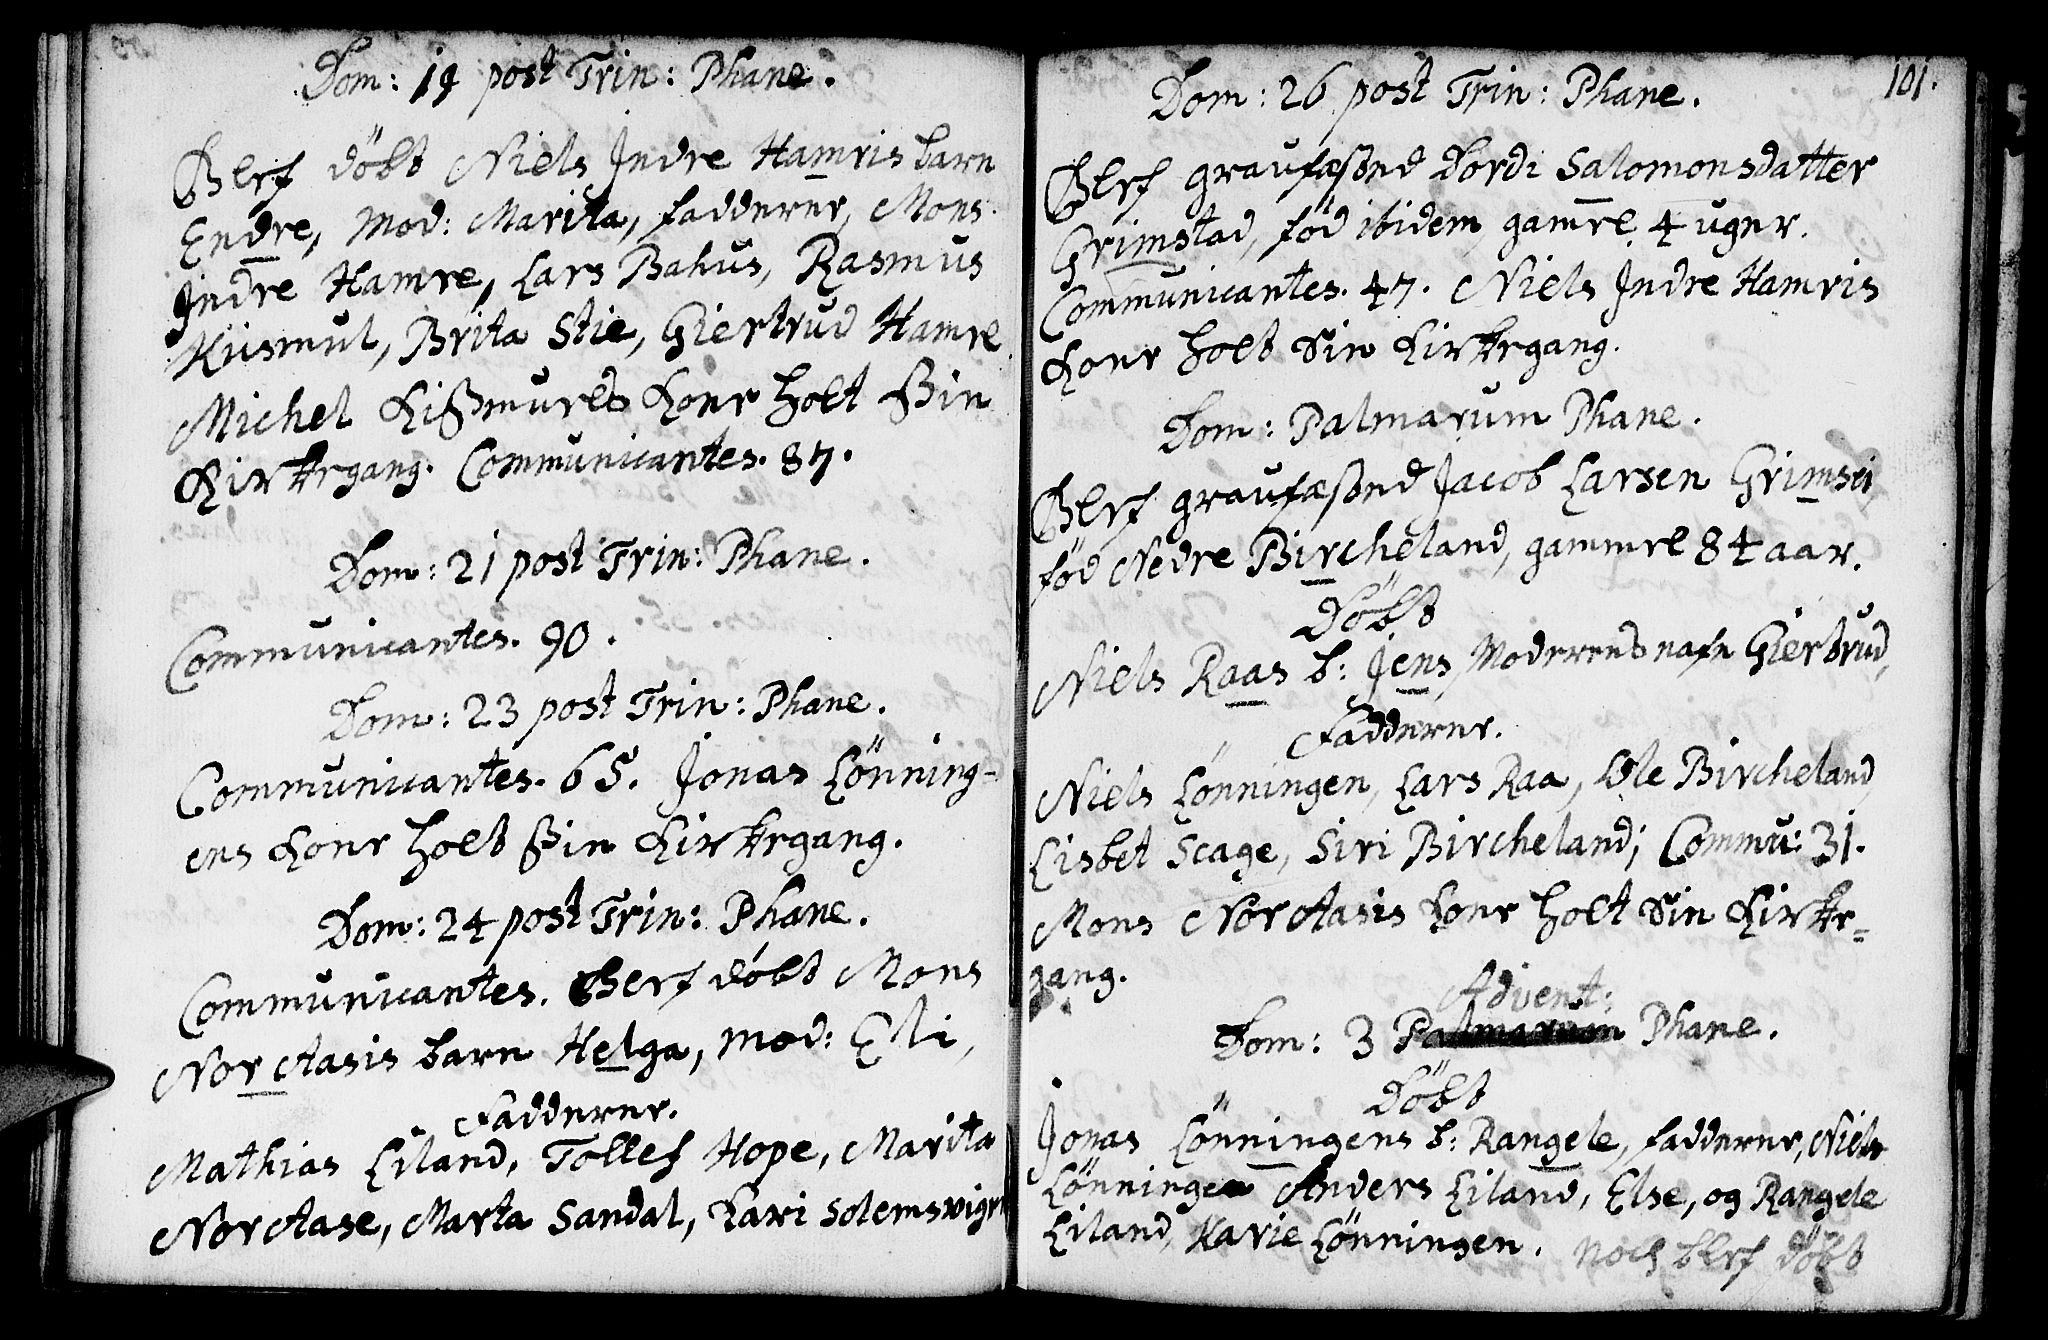 Dom: 19 post Trin: Phane.
Blef döbt Niels Indre Hamris barn
Endre, Mod: Marita, fadderne, Mons
Indre Hamre, Lars Bahus, Rasmus
Kiismul, Brita Stie, Giertrud Hamre
Michel Kißmuels Kone holt ßin
Kirkegang. Communicantes. 87.
Dom: 21 post Trin: Phane.
Communicantes. 90.
Dom: 23 post Trin: Phane.
Communicantes. 65. Jonas Lönning-
ens Kone holt ßin Kirkegang.
Dom: 24 post Trin: Phane.
Communicantes. Blef döbt Mons
Nor Aasis barn Helga, Mod: Eli,
Fadderne.
Mathias Liland, Tollef Hope, Marita
Nor Aase, Marta Sandal, Kari Solemsvigen
101.
Dom: 26 post Trin: Phane.
Blef graufæsted Dordi Salomonsdatter
Grimstad, föd ibidem, gam̅el 4 uger.
Com̅unicantes. 47. Niels Indre Hamris
Kone holt Sin Kirkegang.
Dom: Palmarum Phane.
Blef graufæsted Jacob Larsen Grimsei,
föd Nedre Bircheland, gammel 84 aar.
Döbt
Niels Raas b: Jens, Moderens nafn Giertrud,
Fadderne.
Niels Lönningen, Lars Raa, Ole Bircheland,
Lisbet Scage, Siri Bircheland; Commu: 31.
Mons Nor Aasis Kone holt Sin Kirke=
gang.
Advent:
Dom: 3 Palmarum Phane.
Döbt
Jonas Lönningens b: Rangele, fadderne, Niels
Lönningen Anders Liland, Else, og Rangele
Liland, Karie Lönningen. Noch blef döbt